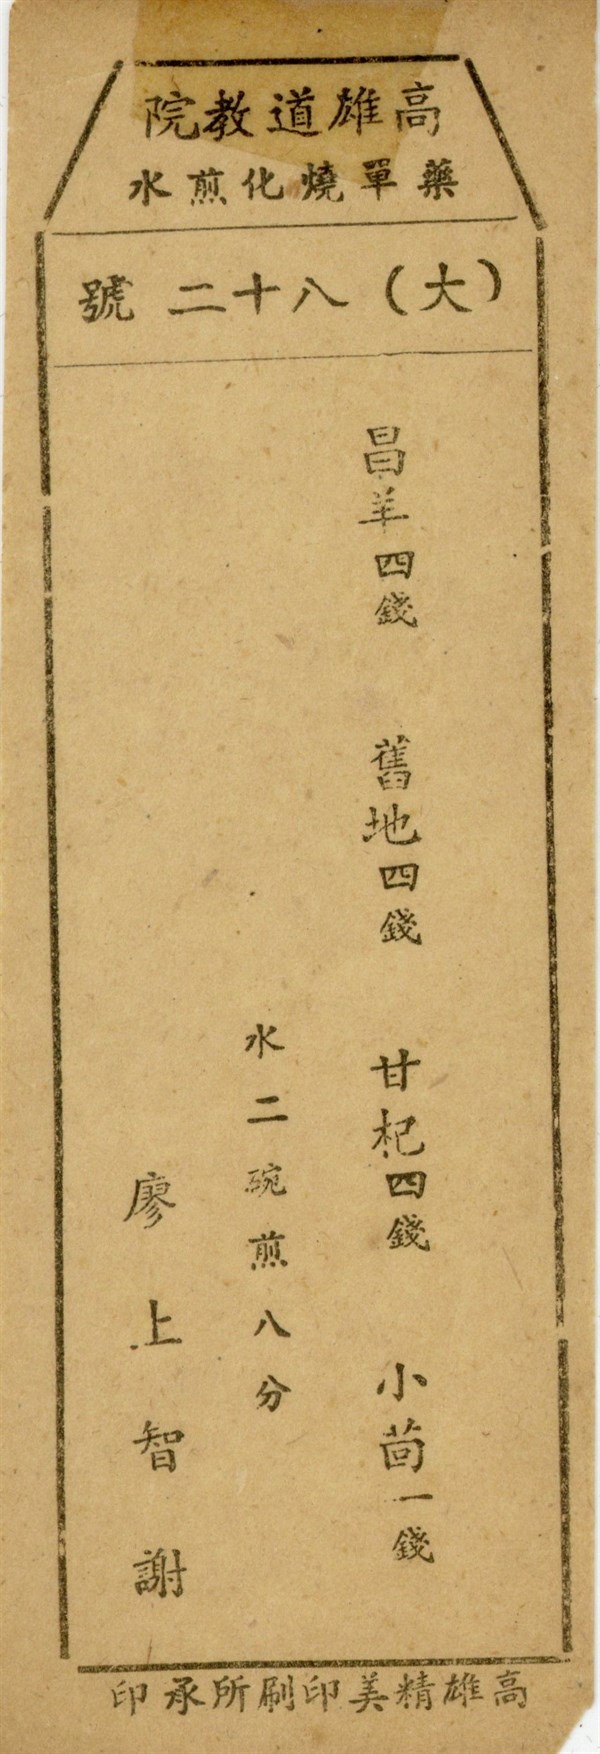 高雄道教院
藥單燒化煎水
（大）八十二號
昌羊四錢　舊地四錢　甘杞四錢　小茴一錢
水二碗煎八分
廖上智謝
高雄精美印刷所承印